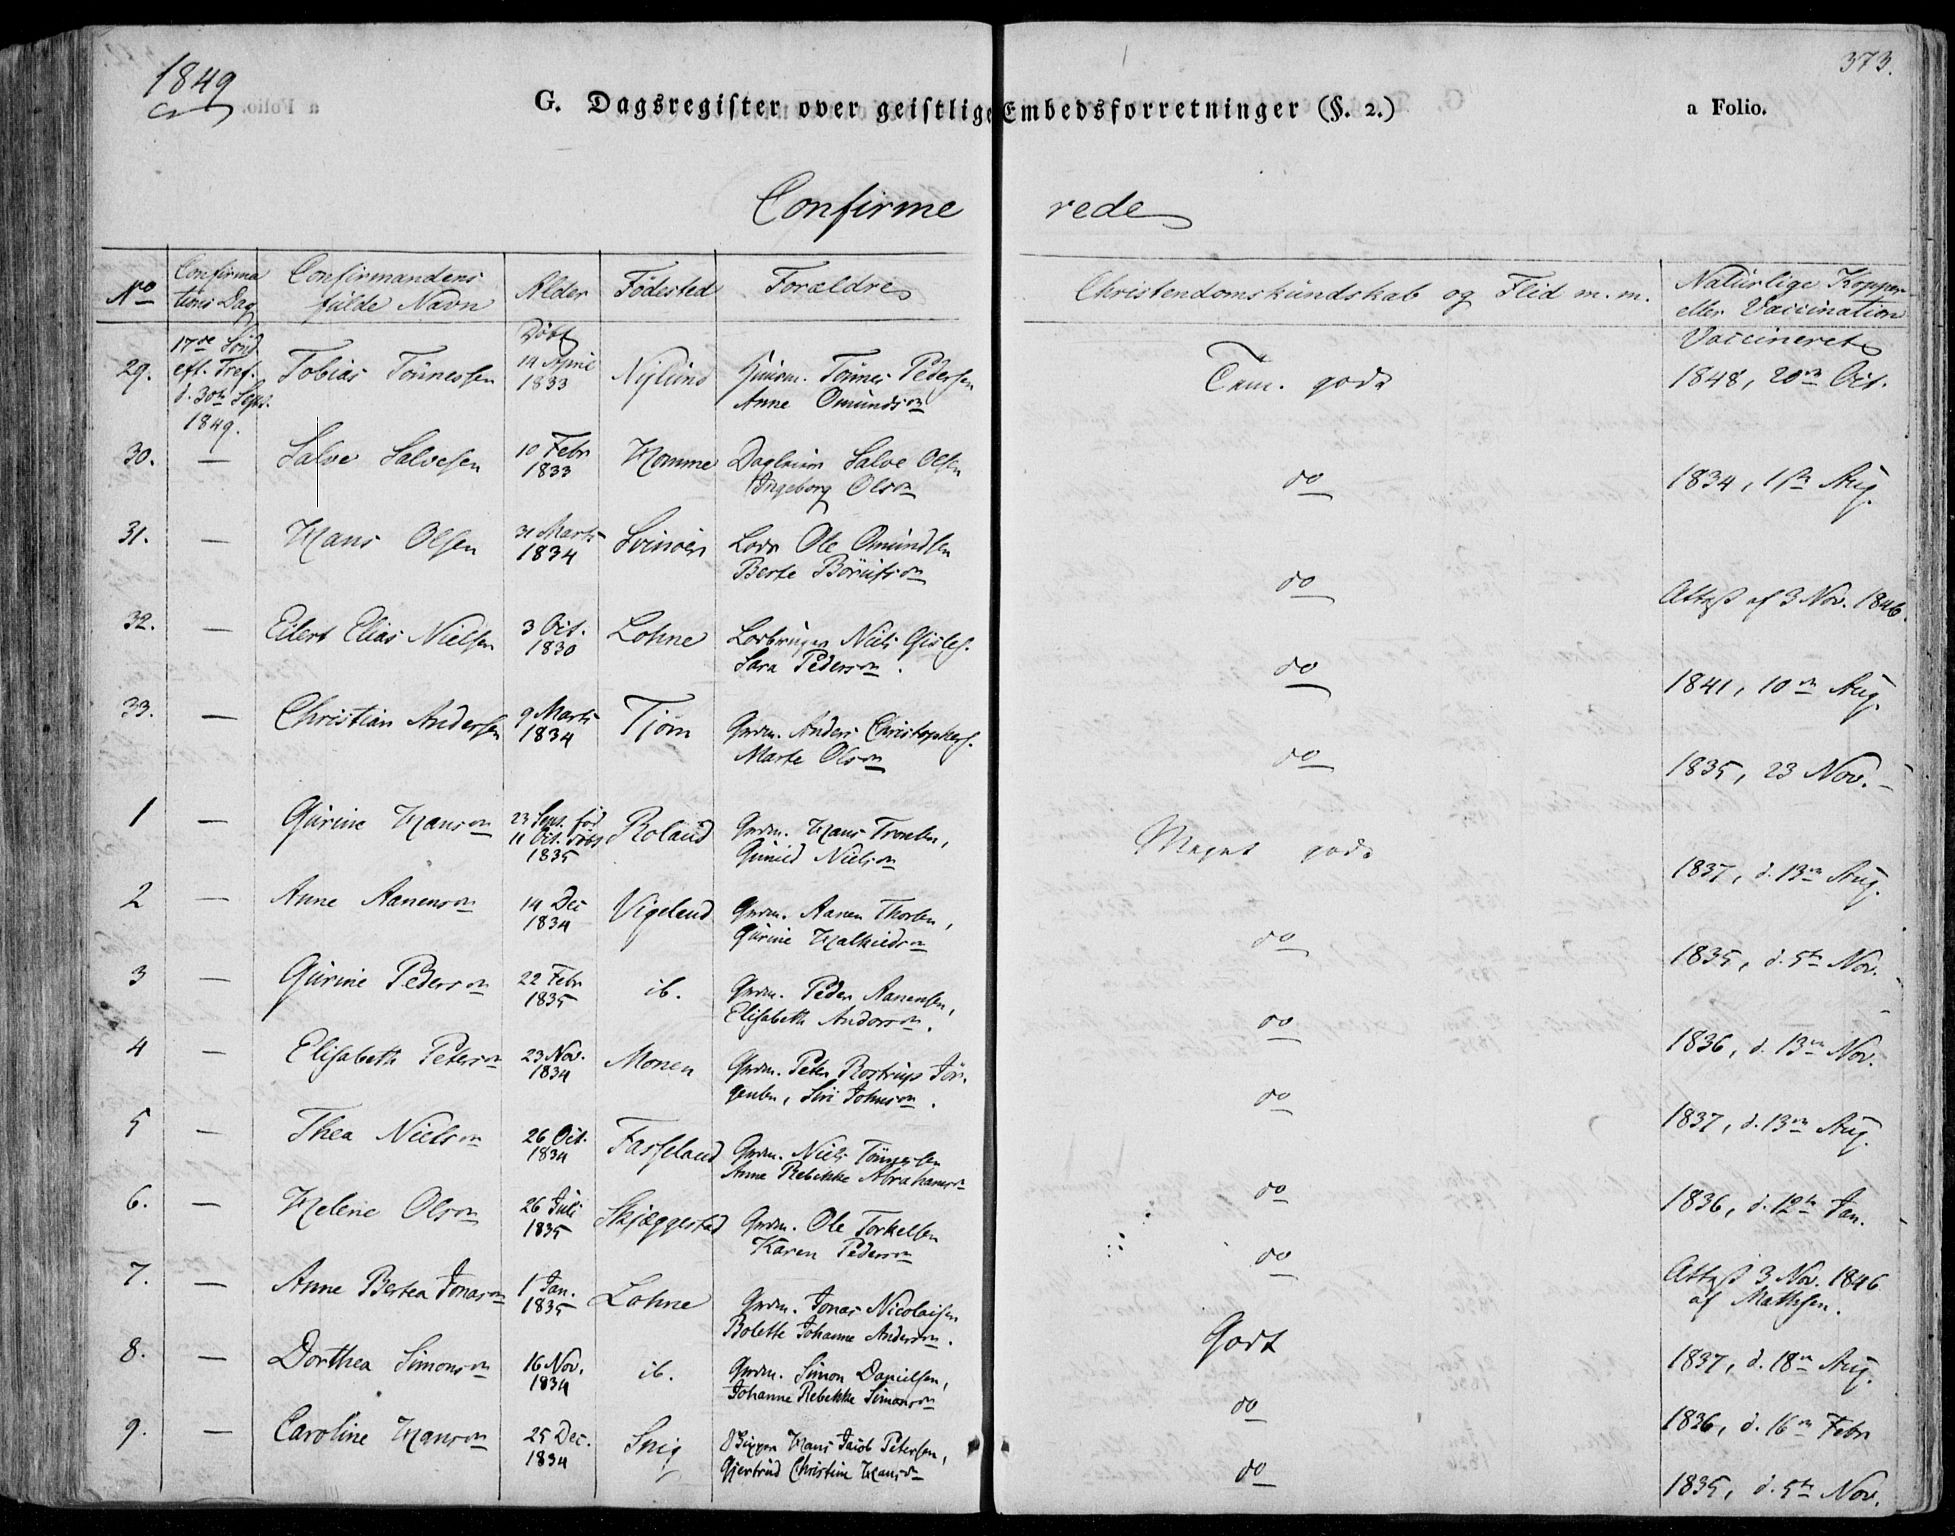 1849
373.
G. Dagsregister over geistlige Embedsforretninger (§. 2.)
a Folio.
Confirmerede
No
Confirmations Dag
Confirmandens fulde Navn
Alder
Fødested
Forældre
Christendomskundskab og Flid m. m.
Naturlige Kopper eller Vaccination
29. 17de Sönd. eft. Tref. d. 30te Sept. 1849. Tobias Tönnessen Döbt 14 April 1833 Nylund Tönnes Pedersen Anne Omundsdn Tem. godt Vaccineret 1848, 20de Oct.
30. — Salve Salvesen 10 Febr 1833 Homme Salve Olsen Ingeborg Olsdn do 1834, Aug.
31. — Hans Olsen 31 Marts 1834 Svinöer Lods Ole Omundsen Berte do Attest af 3 Nov. 1846.
32. — Eilert Elias Nielsen 3 Oct. 1830 Lohne Niels Gisles. Sara Pedersdn. do 1841, 10de Aug.
33. — Christian Andersen 9 Marts 1834 Tjøm Grdm. Anders Christophers. Marte Olsdn do 1835, 23 Nov.
1 — Gurine Hansdn 23 Sept. föd 11 Oct. döbt 1835 Roland Grdm. Hans Tronsen, Gunild Nielsdn Meget godt 1837, d. 13de Aug.
2 — Anne Aanensdn 14 Dec 1834 Vigeland Grdm. Aanen Thorsen, Gurine do 1835, d. 5te Nov.
3 — Gurine Pedersdn 22 Febr 1835 ib. Grdm. Peder Aanensen, Elisabeth Andersdn. do 1836, d. 13de Nov.
4 — Elisabeth Petersdn 23 Nov. 1834 Monen Grdm. Peter Rostrup Jörgensen, Siri Johnsdn. do 1837, d. 13de Aug.
5 — Thea Nielsdn 26 Oct. 1834 Fasseland Grdm. Niels Tönnesen Anne Rebekke Abrahamsdn do 1836, d. 12te Jan.
6. — Helene Olsdn 26 Juli 1835 Skjæggestad Grdm. Ole Torkelsen Karen Pedersdn do Attest 3 Nov. 1846 af Mathesen.
7. — Anne Bertea Jonasdn 1 Jan. 1835 Lohne Grdm. Jonas Nicolaisen Bolette Johanne Andersdn. Godt 1837, d. 18de Aug.
8. — Dorthea Simonsdn 16 Nov. 1834 ib. Grdm. Simon Danielsen, Johanne Rebekke Simonsdn do 1836, d. 16de Febr
9. — Caroline Hansdn 25 Dec. 1834 Snig Skipper Hans Jacob Petersen, Gjertrud Christine Hansdn do 1835, d. 5te Nov.